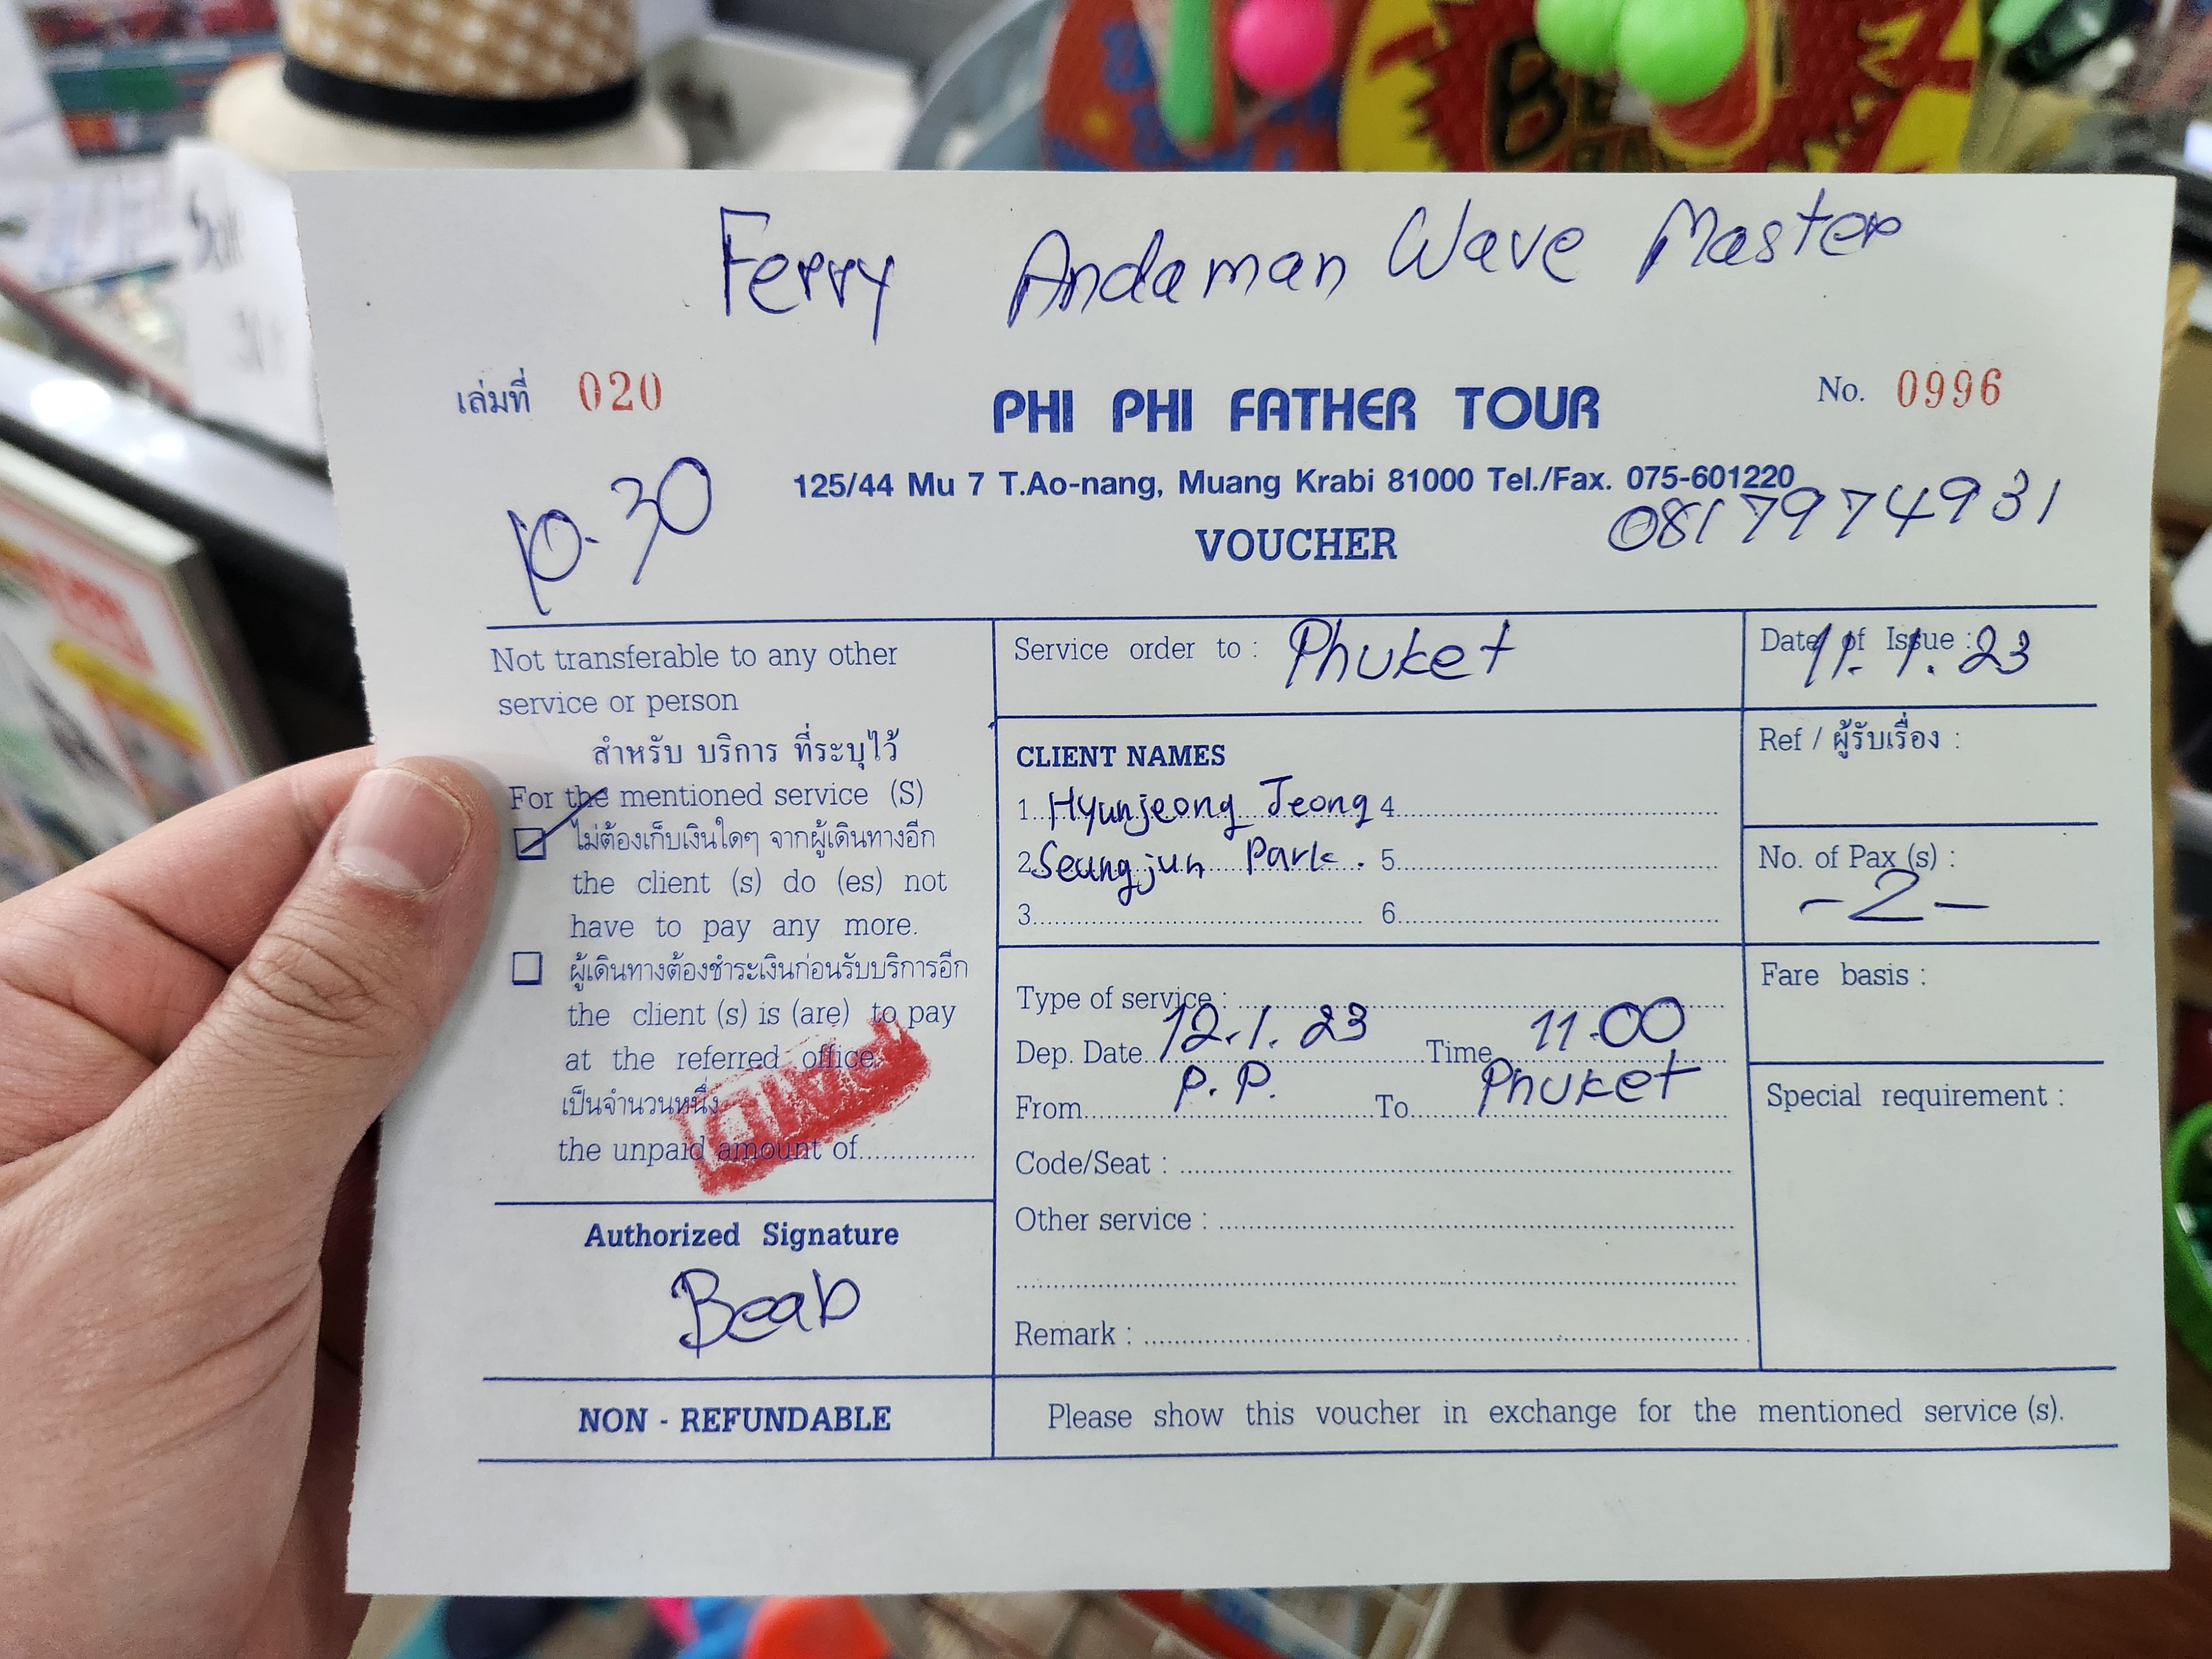 Ferry Andaman Wave Master
เล่มที่ 020
PHI PHI FATHER TOUR
No. 0996
10.30
125/44 Mu 7 T.Ao-nang, Muang Krabi 81000 Tel./Fax. 075-601220
0817974931
VOUCHER
Not transferable to any other
service or person
สำหรับ บริการ ที่ระบุไว้
For the mentioned service (S)
ไม่ต้องเก็บเงินใดๆ จากผู้เดินทางอีก
the client (s) do (es) not
have to pay any more.
ผู้เดินทางต้องชำระเงินก่อนรับบริการอีก
the client (s) is (are) to pay
at the referred office
เป็นจำนวนหนึ่ง
the unpaid amount of
PAID
Authorized Signature
Beab
NON - REFUNDABLE
Service order to : Phuket
CLIENT NAMES
1. Hyunjeong Jeong 4
2 Seungjun Park. 5
3 6
Type of service :
Dep. Date 12.1.23 Time 11.00
From P.P. To Phuket
Code/Seat :
Other service :
Remark :
Date of Issue : 11.1.23
Ref / ผู้รับเรื่อง :
No. of Pax (s) :
-2-
Fare basis :
Special requirement :
Please show this voucher in exchange for the mentioned service (s).